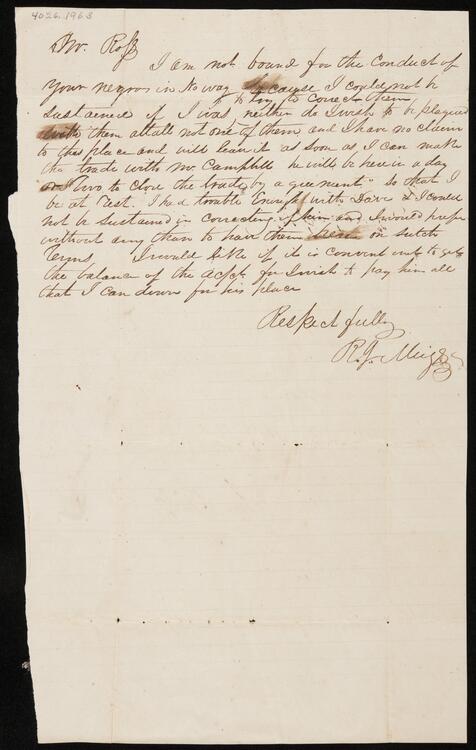 4026.1963
Mr. Ross
I am not bound for the Conduct of
your negros in No way because I could not be
sustained if I was to try to Corect them
neither do I wish to be plagued
with them attall not one of them and I have no claim
to this place and will leave it as soon as I can make
the trade with Mr. Campbell he will be here in a day
or two to close the trade by agreement so that I
be at rest. I had trouble Enough with Dave & I could
not be sustained in correcting of him and I would prefer
without any than to have them on sutch
Terms, I would like if it is convenient to get
the balance of the acpt. for I wish to pay him all
that I can down for his place
Respectfully
R. J. Meigs